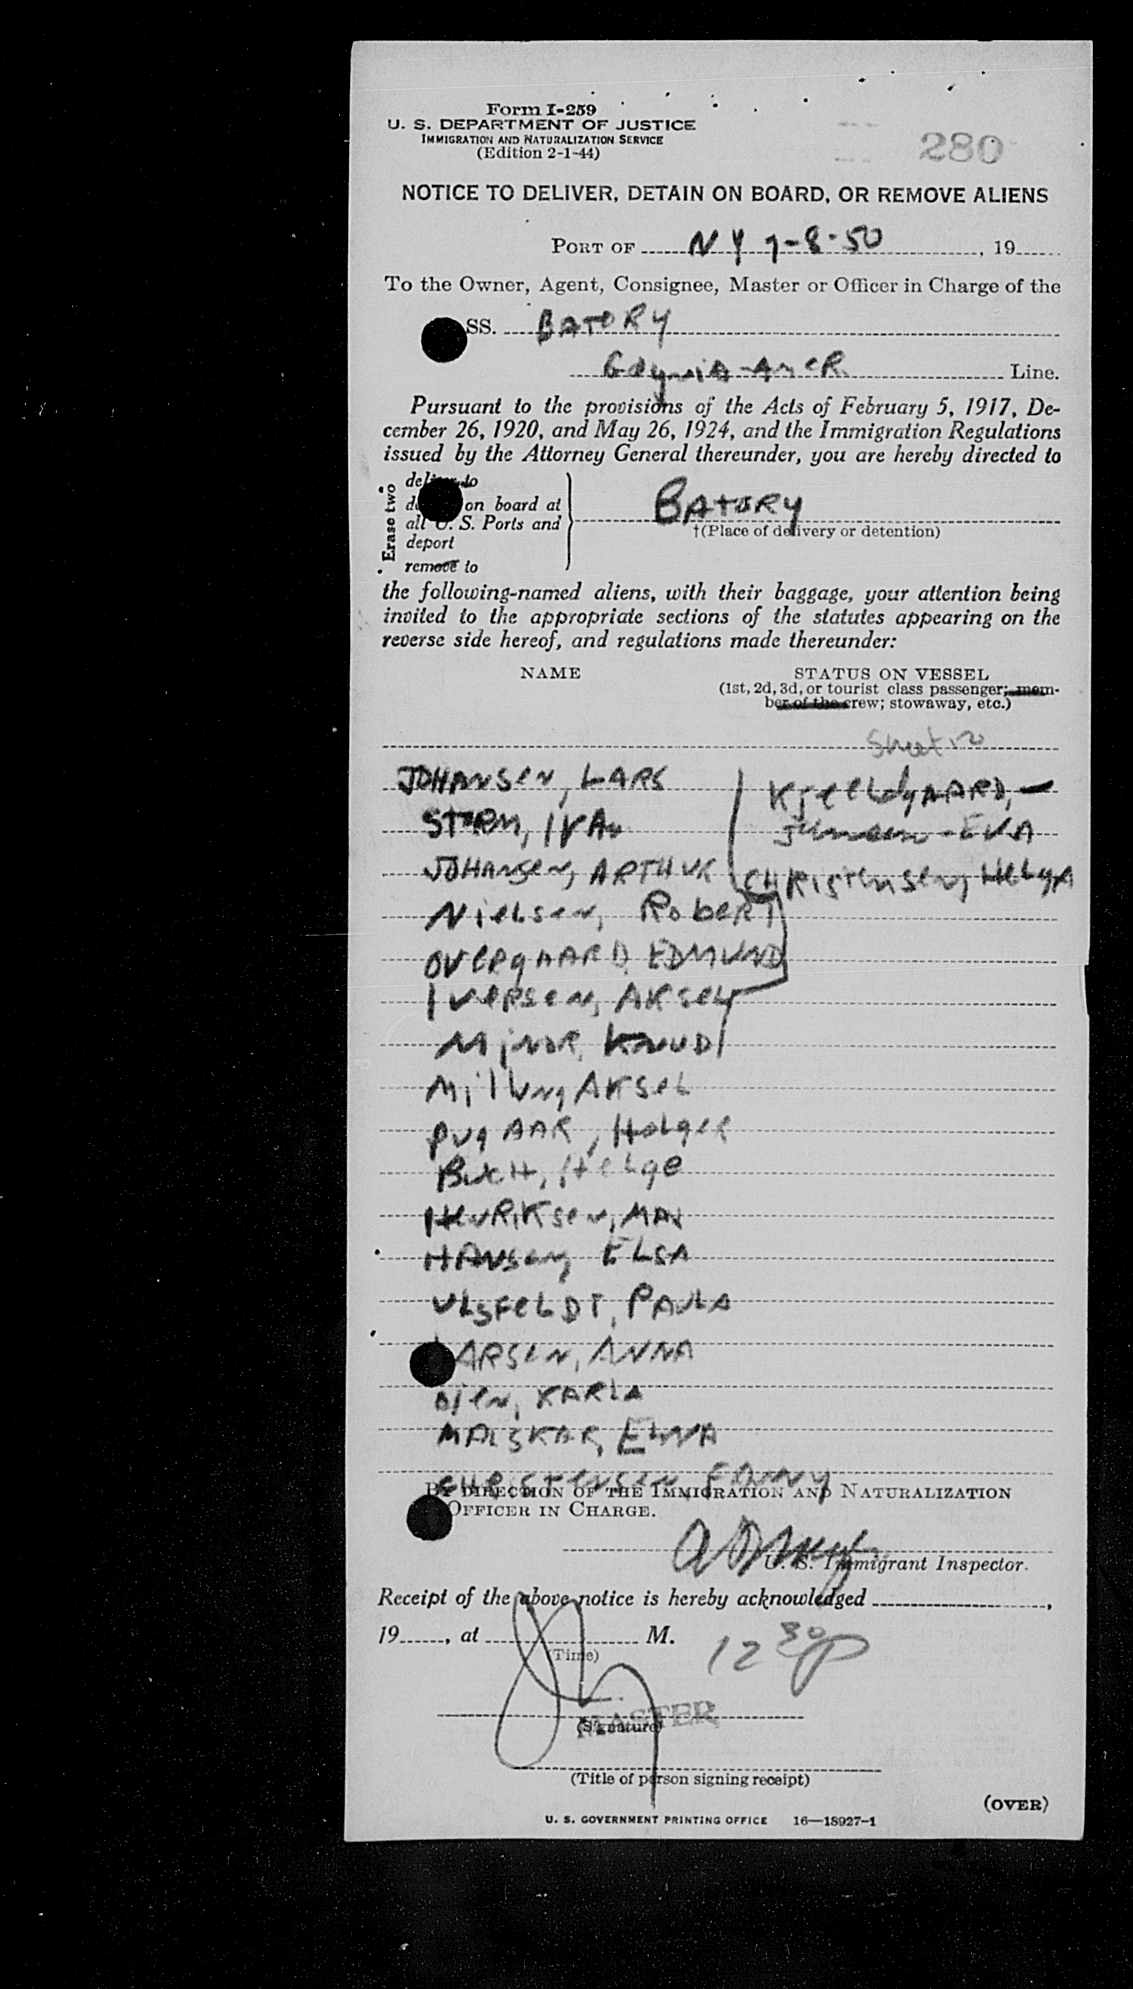 Form I-259
U. S. DEPARTMENT OF JUSTICE
IMMIGRATION AND NATURALIZATION SERVICE
(Edition 2-1-44)
280
NOTICE TO DELIVER, DETAIN ON BOARD, OR REMOVE ALIENS
PORT OF NY 7-8-50, 19
To the Owner, Agent, Consignee, Master or Officer in Charge of the
SS. BATORY
Gdynia-Amer Line.
Pursuant to the provisions of the Acts of February 5, 1917, De-
cember 26, 1920, and May 26, 1924, and the Immigration Regulations
issued by the Attorney General thereunder, you are hereby directed to
Erase two
deliver to
on board at
all U. S. Ports and
deport
remove to
BATORY
†(Place of delivery or detention)
the following-named aliens, with their baggage, your attention being
invited to the appropriate sections of the statutes appearing on the
reverse side hereof, and regulations made thereunder:
NAME
STATUS ON VESSEL
(1st, 2d, 3d, or tourist class passenger; mem-
ber of the crew; stowaway, etc.)
Sheet
JOHANSEN, LARS
STORM, IVAR
JOHANSEN, ARTHUR
NIELSEN, ROBERT
OVERGAARD, EDMUND
IVERSEN, AKSEL
MINOR, KNUD
AKSEL
PUGAAR, HOLGER
HELGE
HENRIKSEN, MAX
HANSEN, ELSA
ULSFELDT, PAULA
LARSEN, ANNA
KARLA
ELNA
CHRISTENSEN, FANNY
KJELLDGAARD, -
JENSEN - EVA
CHRISTENSEN, HELGA
BY DIRECTION OF THE IMMIGRATION AND NATURALIZATION
OFFICER IN CHARGE.
U. S. Immigrant Inspector.
Receipt of the above notice is hereby acknowledged ,
19 , at M.
(Time)
12 30p
MASTER
(Signature)
(Title of person signing receipt)
(OVER)
U. S. GOVERNMENT PRINTING OFFICE 16—18927-1